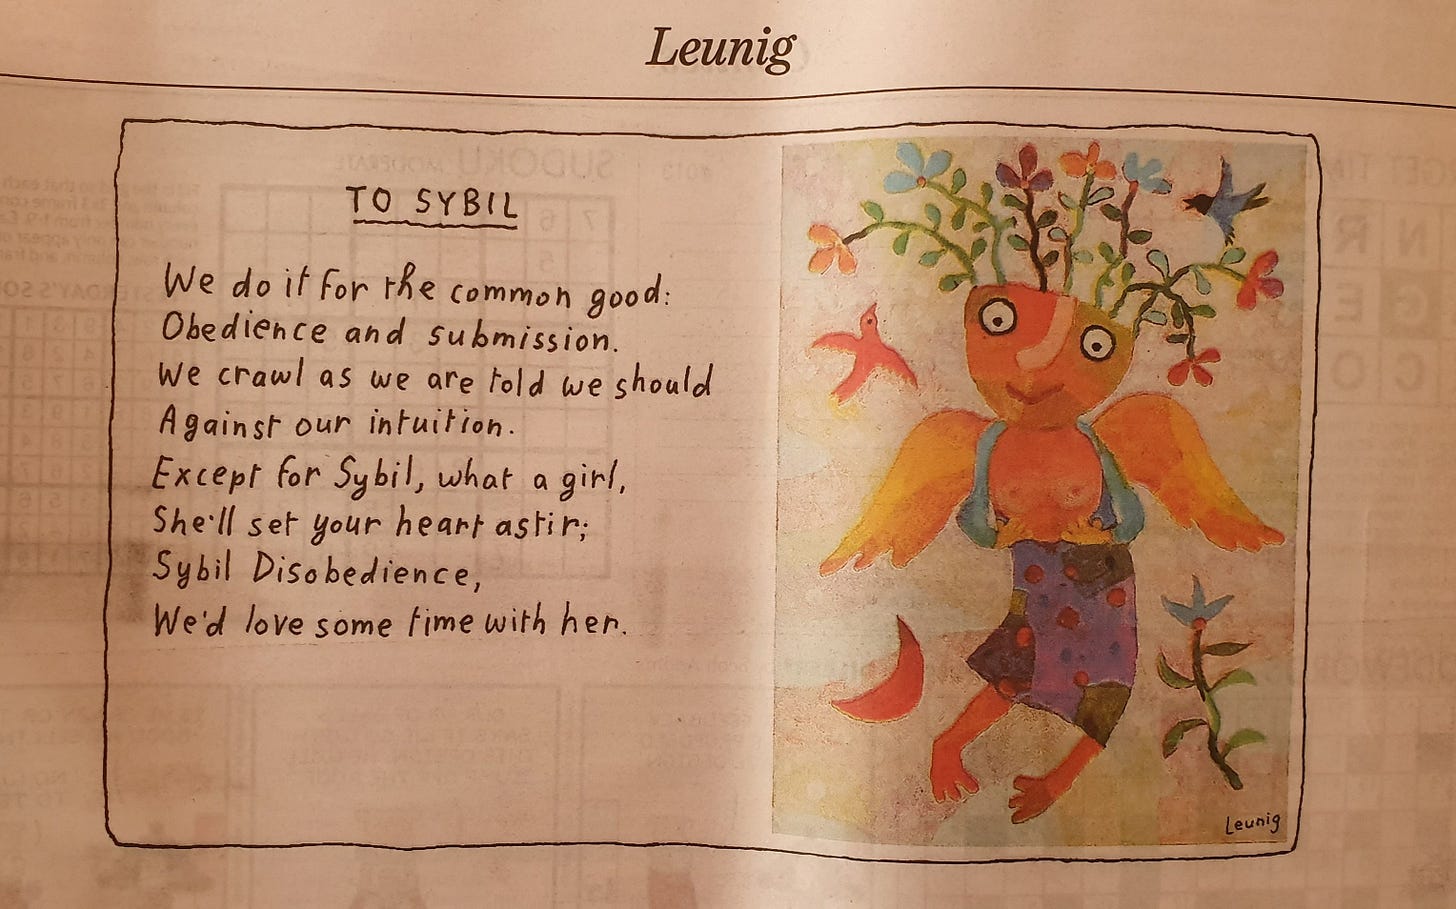 Leunig
TO SYBIL
We do it for the common good:
Obedience and submission.
We crawl as we are told we should
Against our intuition.
Except for Sybil, what a girl,
She'll set your heart astir;
Sybil Disobedience,
We'd love some time with her.
Leunig